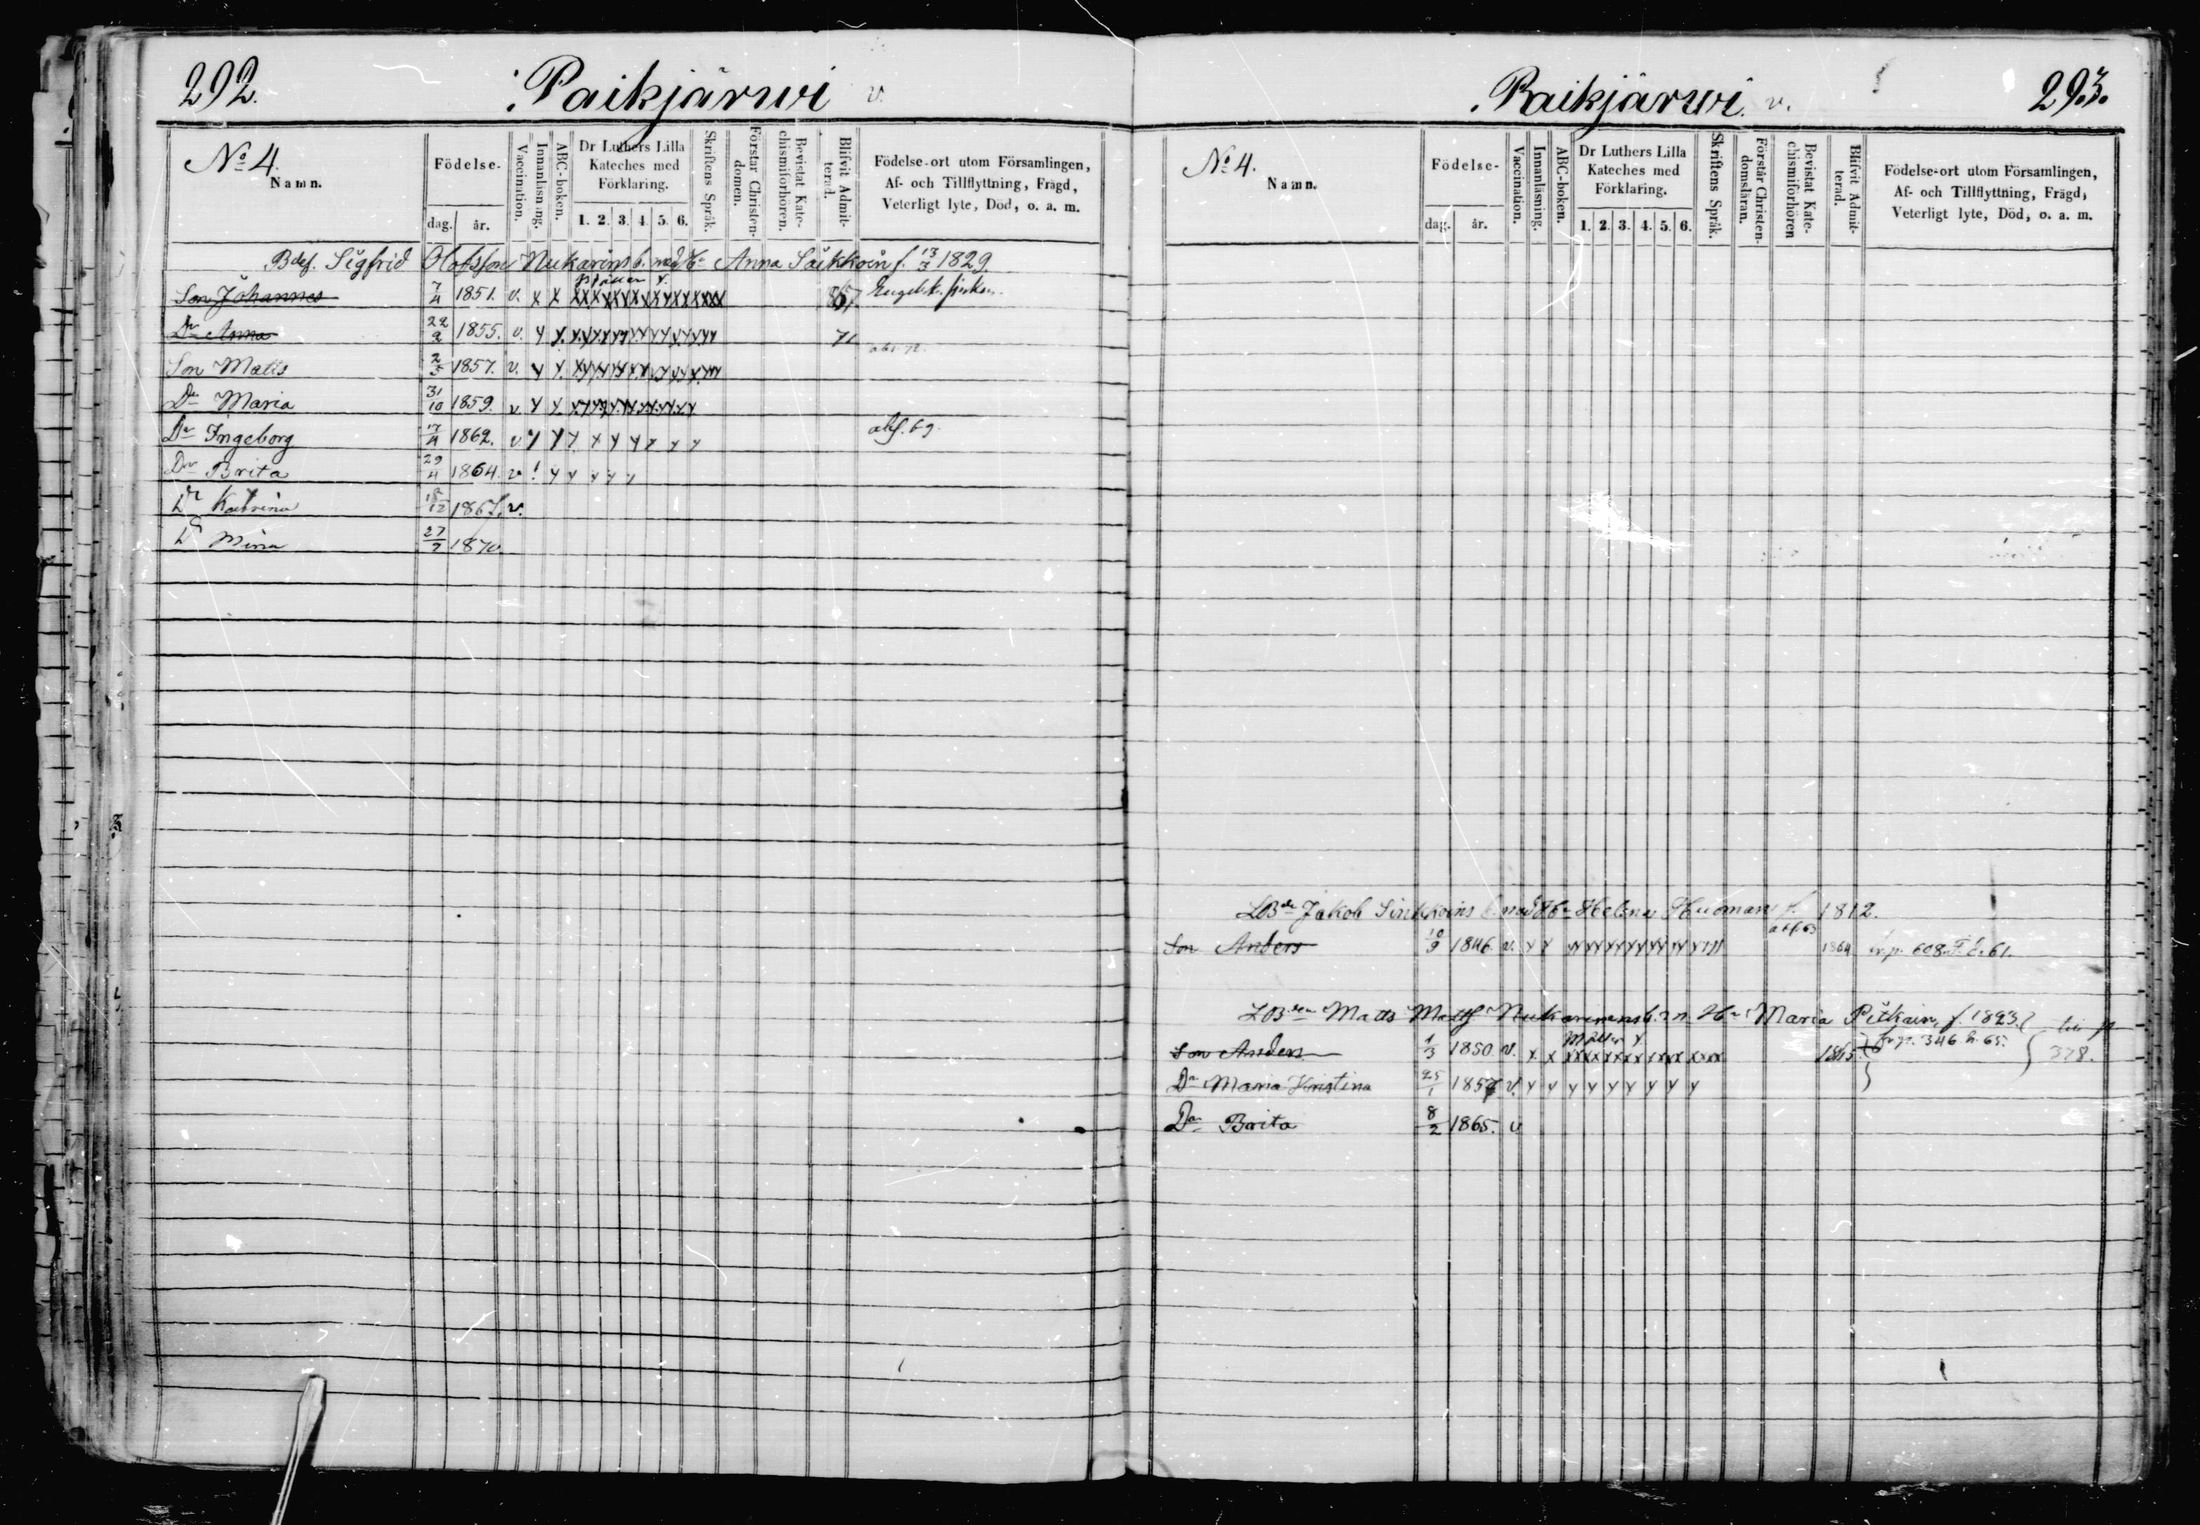 292. Paikjärwi v.
No 4.
Namn. Födelse- dag. år. Vaccination. Innanläsning. ABC-boken. Dr Luthers Lilla Kateches med Förklaring. 1. 2. 3. 4. 5. 6. Skriftens Språk. Förstår Christendomen. Bevistat Katechismiförhören. Blifvit Admitterad. Födelse-ort utom Församlingen, Af- och Tillflyttning, Frägd, Veterligt lyte, Död, o. a. m.
Sigfrid Olofsson Nukarins b. med Anna f. 13/7 1829.
Son Johannes 7/4 1851. v. x x 867
Dr Anna 22/2 1855. v. 71
Son Matts 2/5 1857. v.
Dr Maria 31/10 1859. v.
Dr Ingeborg 17/4 1862. v. abs. 69.
Dr Brita 29/4 1864. v
Dr Katrina 18/12 1867. v.
Dr Mina 27/9 1870
Paikjärwi v. 293.
No 4.
Namn. Födelse- dag. år. Vaccination. Innanläsning. ABC-boken. Dr Luthers Lilla Kateches med Förklaring. 1. 2. 3. 4. 5. 6. Skriftens Språk. Förstår Christendomsläran. Bevistat Katechismiförhören Blifvit Admitterad. Födelse-ort utom Församlingen, Af- och Tillflyttning, Frägd, Veterligt lyte, Död, o. a. m.
Jakob Sinkkoins Helena f. 1812.
Son Anders 10/9 1846. v. 1864 608. 61.
Matts Matts Maria Pitkäin, f. 1823.
Son Anders 1/3 1850. v. x x 1865. 346 65. 378.
Dr Maria Kristina 25/1 1857 v.
Dr Brita 8/2 1865. v